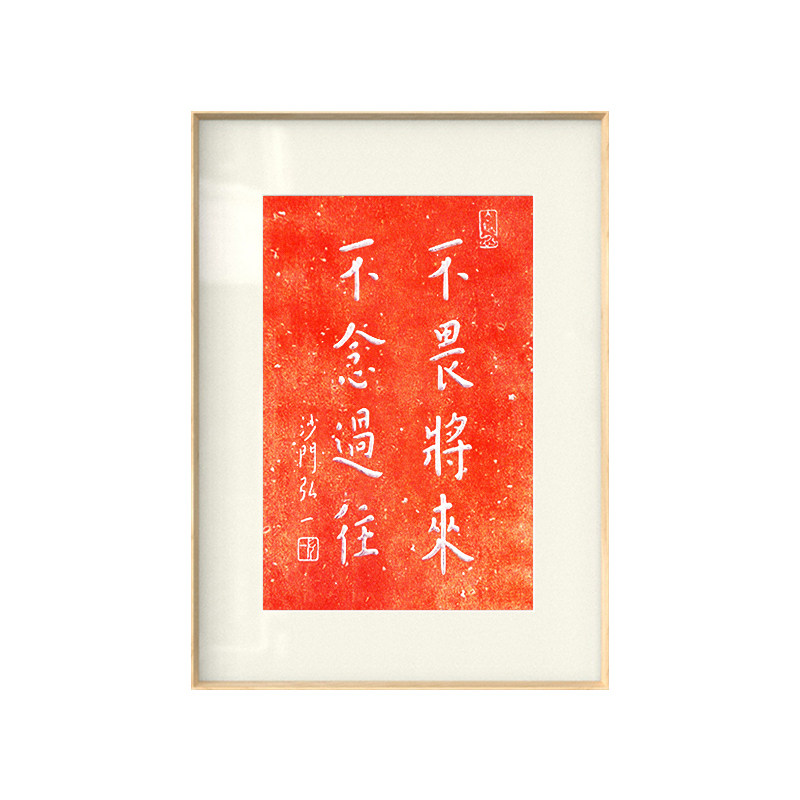 不畏將來
不念過往
沙門弘一